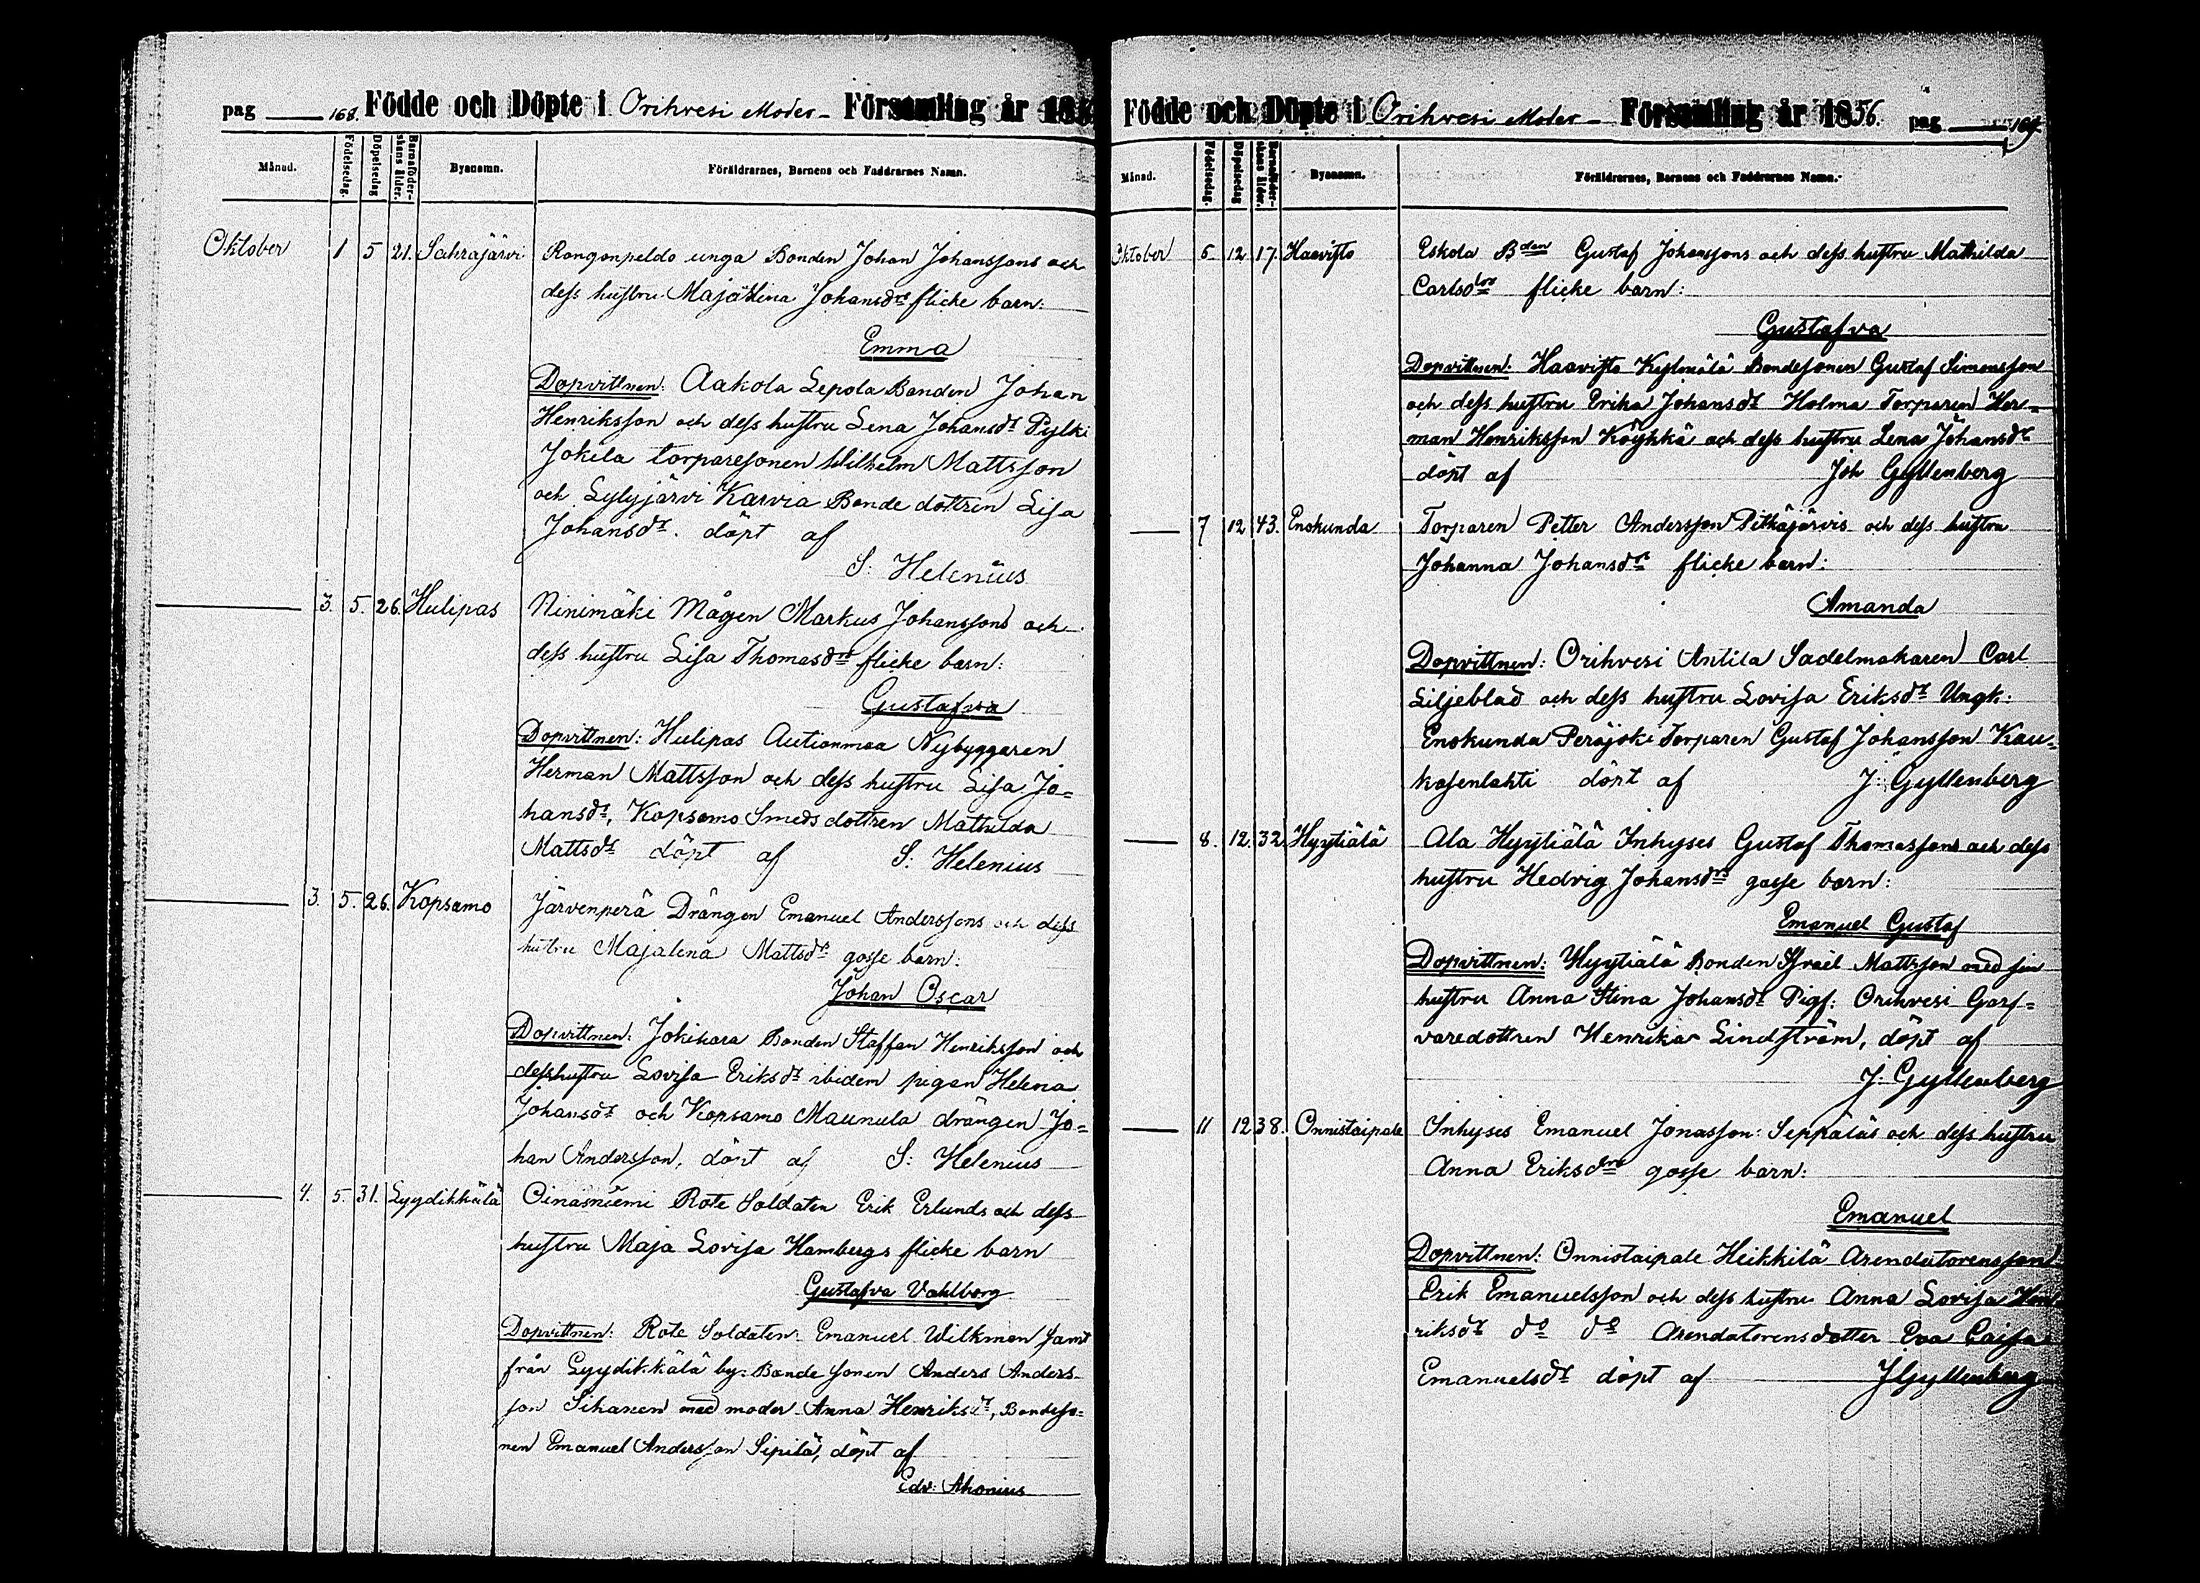 pag 168. Födde och Döpte i Orihvesi Moder- Församling år 185
Månad. Födelsedag. Döpelsedag Barnaföderskans ålder. Byanamn. Föräldrarnes, Barnens och Faddrarnes Namn.
Oktober 1 5 21. Sahrajärvi Rongonpeldo unga Bonden Johan Johanssons och
dess hustru Maja Stina Johansdrs flicke barn:
Emma
Dopvittnen: Aakola Lepola Bonden Johan
Henriksson och dess hustru Lena Johansdr Pylki
Jokila torparesonen Wilhelm Mattsson
och Lylyjärvi Karvia Bonde dottren Lisa
Johansdr. döpt af
S: Helenius
3. 5. 26. Hulipas Ninimäki Mågen Markus Johanssons och
dess hustru Lisa Thomasdrs flicke barn:
Gustafva
Dopvittnen: Hulipas Autionmaa Nybyggaren
Herman Mattsson och dess hustru Lisa Jo=
hansdr, Kopsamo Smeds dottren Mathilda
Mattsdr döpt af S: Helenius
3. 5. 26. Kopsamo Järvenperä Drängen Emanuel Anderssons och dess
hustru Majalena Mattsdr gosse barn:
Johan Oscar
Dopvittnen: Jokihara Bonden Staffan Henriksson och
dess hustru Lovisa Eriksdr ibidem pigan Helena
Johansdr och Kopsamo Maunula drängen Jo=
han Andersson, döpt af S: Helenius
4. 5. 31. Lyydikkälä Oinasniemi Rote Soldaten Erik Erlunds och dess
hustru Maja Lovisa Hambergs flicke barn
Gustafva Vahlborg
Dopvittnen: Rote Soldaten Emanuel Wilkman samt
från Lyydikkälä by. Bonde sonen Anders Anders-
son Sihanen med moder Anna Henriksdr, Bondeso=
nen Emanuel Andersson Sipilä, döpt af
Edv: Ahonius
Födde och Döpte i Orihvesi Moder- Församling år 1856. pag 169.
Månad. Födelsedag. Döpelsedag Barnaföderskans ålder. Byanamn. Föräldrarnes, Barnens och Faddrarnes Namn.
Oktober 6 12 17. Haavisto Eskola Bden Gustaf Johanssons och dess hustru Mathilda
Carlsdrs flicke barn:
Gustafva
Dopvittnen: Haavisto Kylmälä Bondesonen Gustaf Simonsson
och dess hustru Erika Johansdr Holma Torparen Her=
man Henriksson Köykkä och dess hustru Lena Johansdr
döpt af Joh Gyllenberg
7 12 43. Enokunda Torparen Petter Andersson Pitkäjärvis och dess hustru
Johanna Johansdrs flicke barn:
Amanda
Dopvittnen: Orihvesi Antila Sadelmakaren Carl
Liljeblad och dess hustru Lovisa Eriksdr Ungk:
Enokunda Peräjoki Torparen Gustaf Johansson Kau=
kasenlahti döpt af J: Gyllenberg
8. 12. 32. Hyytiälä Ala Hyytiälä Inhyses Gustaf Thomassons och dess
hustru Hedvig Johansdrs gosse barn:
Emanuel Gustaf
Dopvittnen: Hyytiälä Bonden Israel Mattsson med sin
hustru Anna Stina Johansdr Pigs: Orihvesi Garf=
varedottren Henrika Lindström, döpt af
J. Gyllenberg
11 12 38. Onnistaipale Inhyses Emanuel Jonasson: Seppäläs och dess hustru
Anna Eriksdrs gosse barn:
Emanuel
Dopvittnen: Onnistaipale Heikkilä Arendatorensson
Erik Emanuelsson och dess hustru Anna Lovisa Hen
riksdr do do Arendatorensdotter Eva Caisa
Emanuelsdr döpt af J Gyllenberg